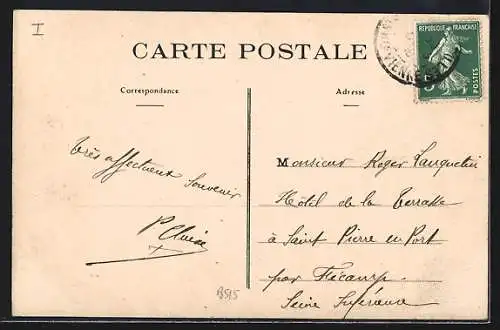 I
CARTE POSTALE
RÉPUBLIQUE FRANÇAISE
POSTES
5
Correspondance
Adresse
très affectueux souvenir
Monsieur Roger Lanquetin
Hôtel de la Terrasse
à Saint Pierre en Port
par Fécamp
Seine Inférieure